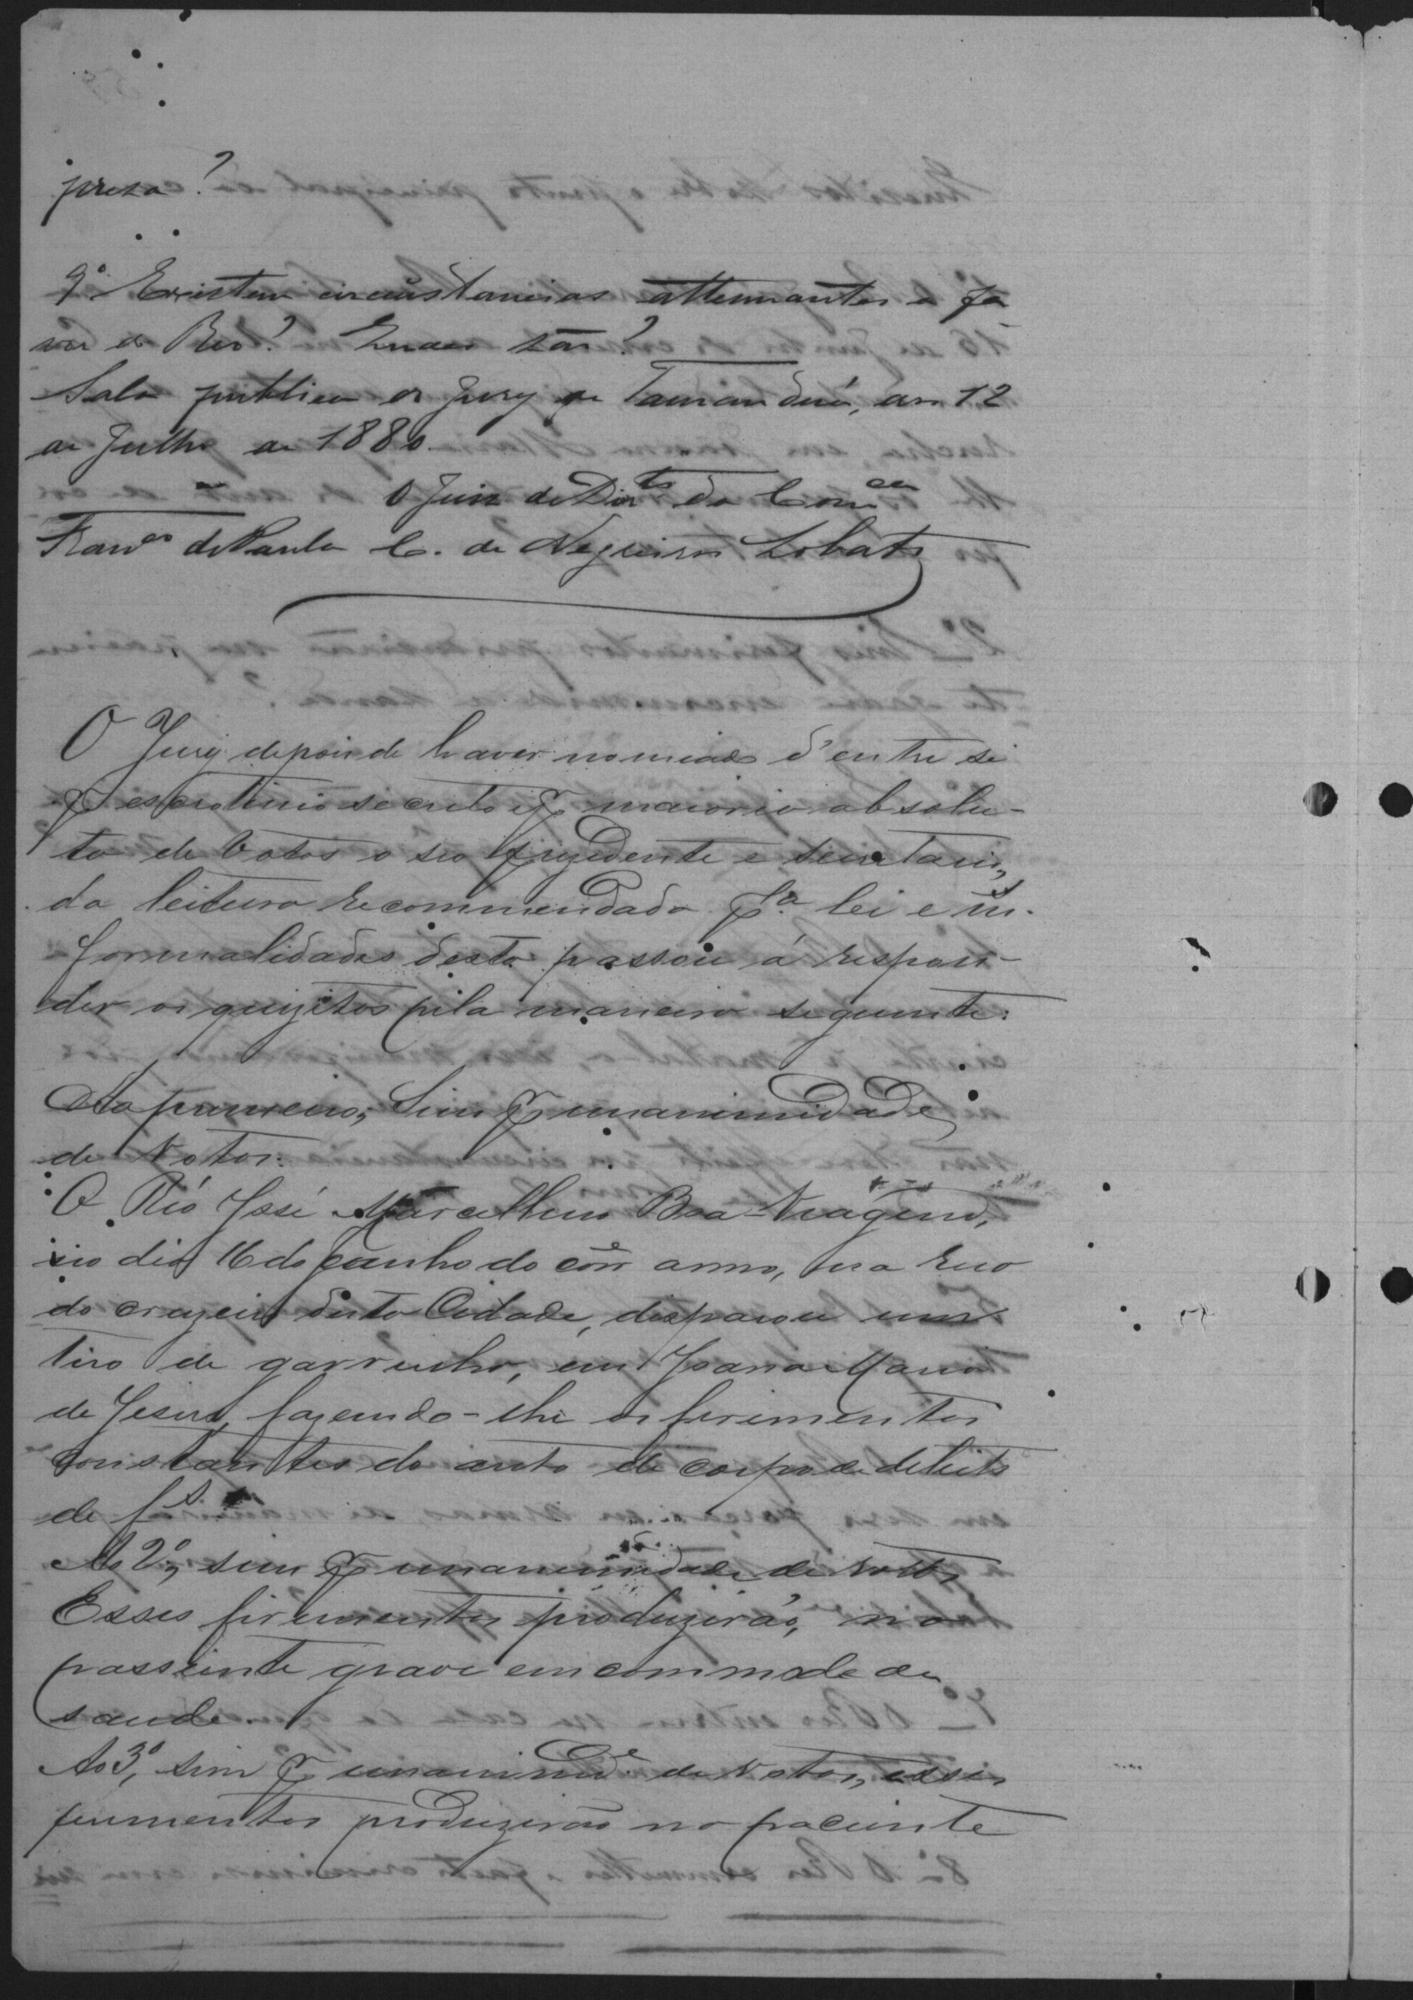 preza?
9º Existem circunstancias attenuantes a fa
vor do Reo? Quaes são?
Sala publica do Jury de Tamanduá, aos 12
de Julho de 1880.
O Juiz de Dirto da Comca
Franco de Paula C. de Negreiros Lobato
O Jury depois de haver nomeado d'entre si
p escrotinio secreto e p maioria absolu-
ta de Votos o seo prezedente e secretario,
da leitura recommendada pla lei e
formalidades desta passou á respon-
der os quizitos pela maneira seguinte:
Ao primeiro; Sim p unanimidade
de Votos:
O Réo José Marcellino Boa-Viagem,
no dia 16 de junho do corre anno, na rua
do cruzeiro desta Cidade, desparou um
tiro de garrucha, em Joana Maria
de Jesus, fazendo-lhe os ferimentos
constantes do auto de corpo de delicto
de fs.
Ao 2º, sim p unanimidade de votos,
Esses firimentos produzirão, no
passiente grave encommodo de
saude.
Ao 3º, sim p unanimide de Votos, esses
ferimentos produzirão no paciente